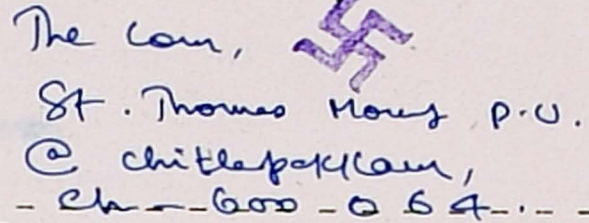 The Com,
St. Thomas Mount P.U.
@ Chitlapakkam,
Ch - 600 064.